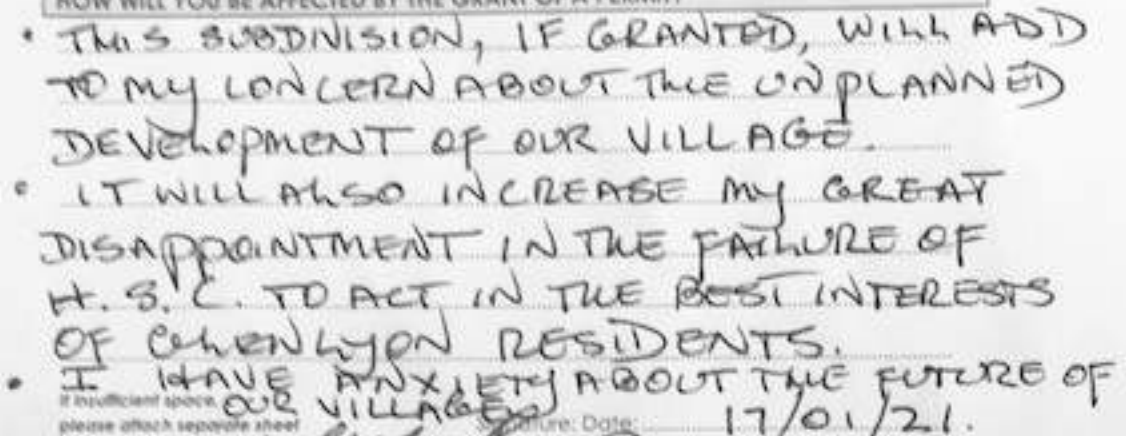 HOW WILL YOU BE AFFECTED BY THE GRANT OF A PERMIT?
• THIS SUBDIVISION, IF GRANTED, WILL ADD
TO MY CONCERN ABOUT THE UNPLANNED
DEVELOPMENT OF OUR VILLAGE.
• IT WILL ALSO INCREASE MY GREAT
DISAPPOINTMENT IN THE FAILURE OF
H.S.C. TO ACT IN THE BEST INTERESTS
OF GLENLYON RESIDENTS.
• I HAVE ANXIETY ABOUT THE FUTURE OF
OUR VILLAGE
If insufficient space,
please attach separate sheet
Signature: Date: 17/01/21.